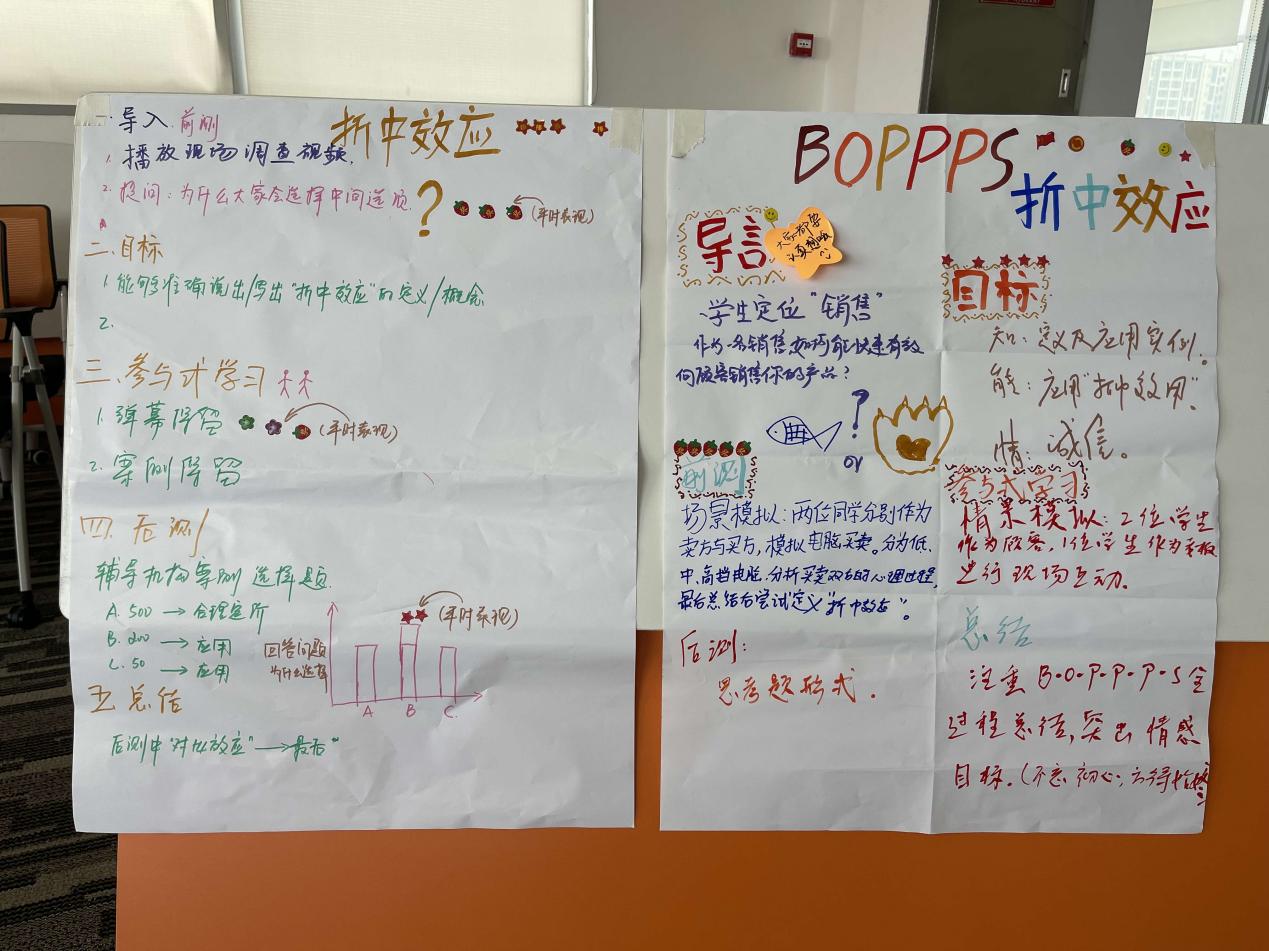 折中效应
一. 导入 前测
1. 播放现场调查视频.
2. 提问: 为什么大家会选择中间选项 ?
(平时表现)
二. 目标
1. 能够准确说出/写出"折中效应"的定义/概念
2.
三. 参与式学习
1. 弹幕保留
(平时表现)
2. 案例保留
四. 后测
辅导机构案例 选择题
A. 500 → 合理定价
B. 200 → 应用
C. 50 → 应用
回答问题
为什么选择
(平时表现)
A B C.
五 总结
后测中"对比效应"→最后"
BOPPPS
折中效应
导言
大家都要
认真想哦
学生定位"销售"
作为一名销售,如何能快速有效
向顾客销售你的产品?
?
or
前测
场景模拟: 两位同学分别作为
卖方与买方, 模拟电脑买卖。分为低.
中.高档电脑.分析买卖双方的心理过程,
最后总结后尝试定义"折中效应"。
后测:
思考题形式.
目标
知: 定义及应用实例.
能: 应用"折中效用".
情: 诚信。
参与式学习
情景模拟: 2位学生
作为顾客, 1位学生作为老板
进行现场互动。
总结
注重B·O·P·P·P·S全
过程总结,突出情感
目标.(不忘初心,方得始终)